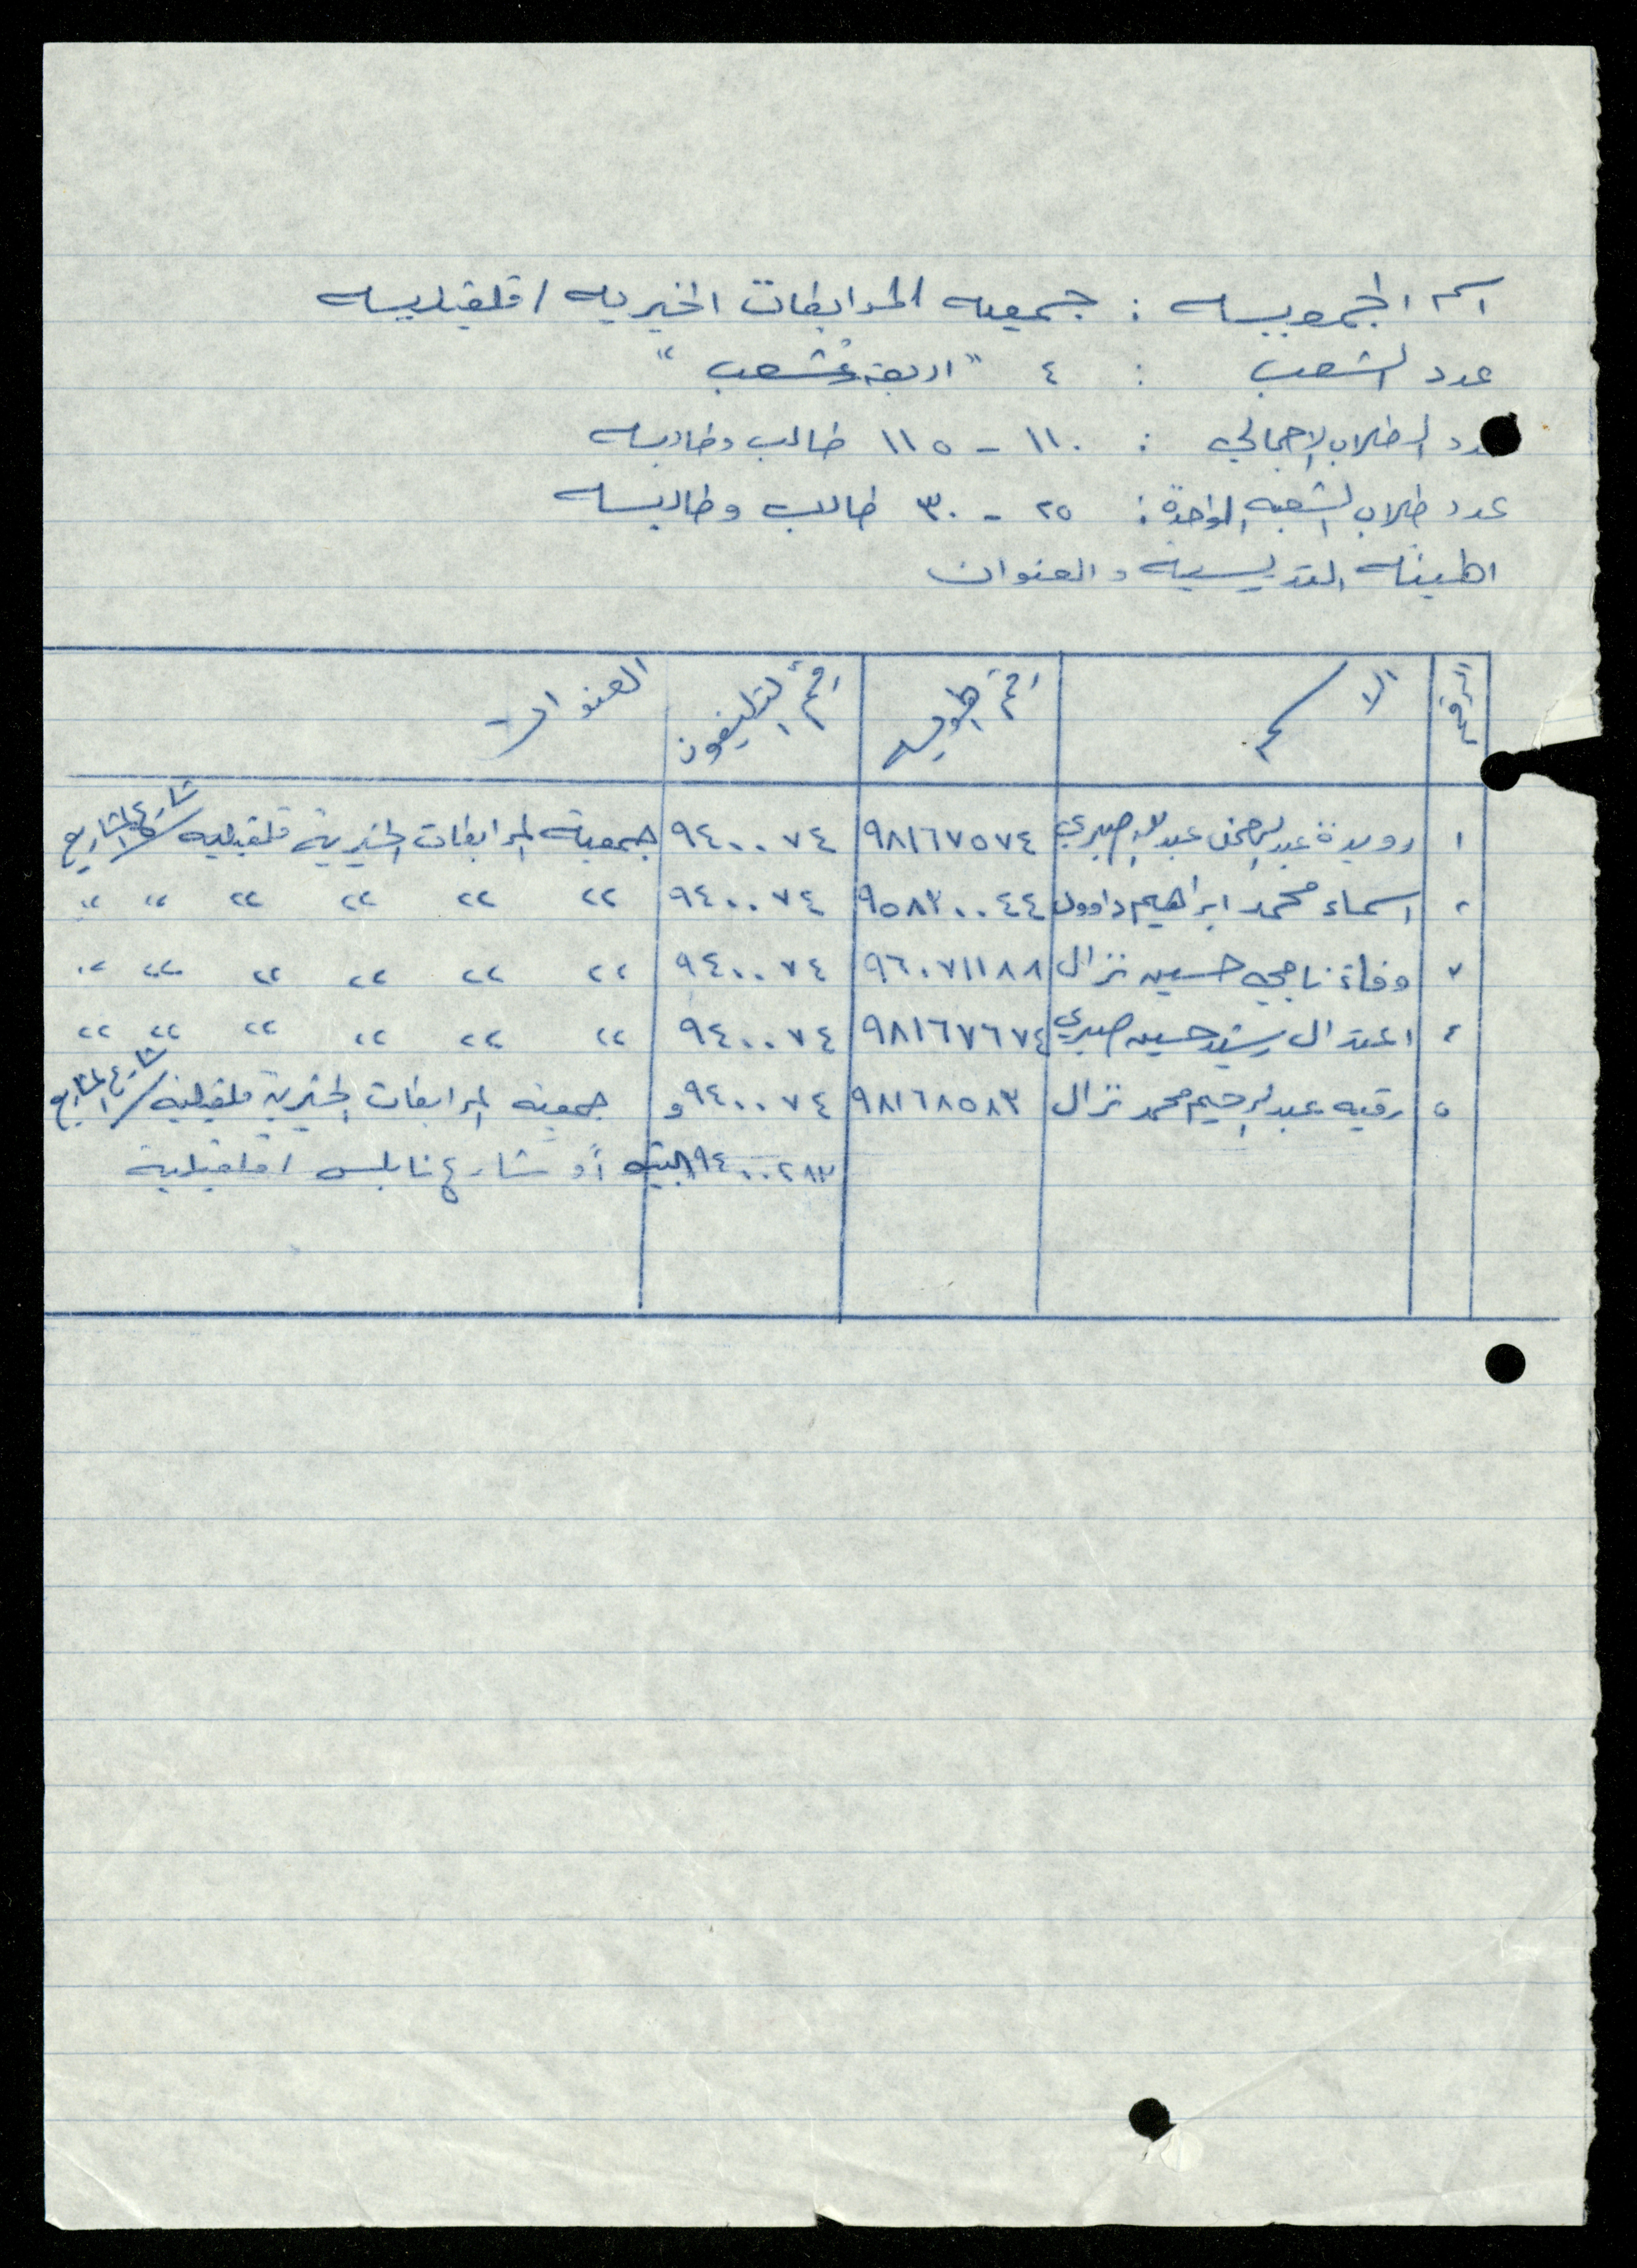 اسم الجمعيه : جمعيه المرابطات الخيريه / قلقيليه
عدد الشعب : ٤ " اربعة شعب "
عدد الطلاب الاجمالي : ١١٠ - ١١٥ طالب وطالبه
عدد طلاب الشعبه الواحدة : ٢٥ - ٣٠ طالب وطالبه
الهيئه التدريسيه والعنوان
الرقم الاسم رقم الهويه رقم التليفون العنوان
١ رويدة عبد الرحمن عبد الله صبري ٩٨١٦٧٥٧٤ ٩٤٠٠٧٤ جمعية المرابطات الخيرية قلقيليه / شارع
٢ اسماء محمد ابراهيم داوود ٩٥٨٣٠٠٤٤ ٩٤٠٠٧٤ " " " " " "
٣ وفاء ناجي حسين نزال ٩٦٠٧١١٨٨ ٩٤٠٠٧٤ " " " " " "
٤ اعتدال رشيد حسين صبري ٩٨١٦٧٦٧٤ ٩٤٠٠٧٤ " " " " " "
٥ رقيه عبد الرحيم محمد نزال ٩٨١٦٨٥٨٣ ٩٤٠٠٧٤ و جمعية المرابطات الخيرية قلقيلية / شارع
٩٤٠٠٢٨٣ البيت أو شارع نابلس / قلقيلية